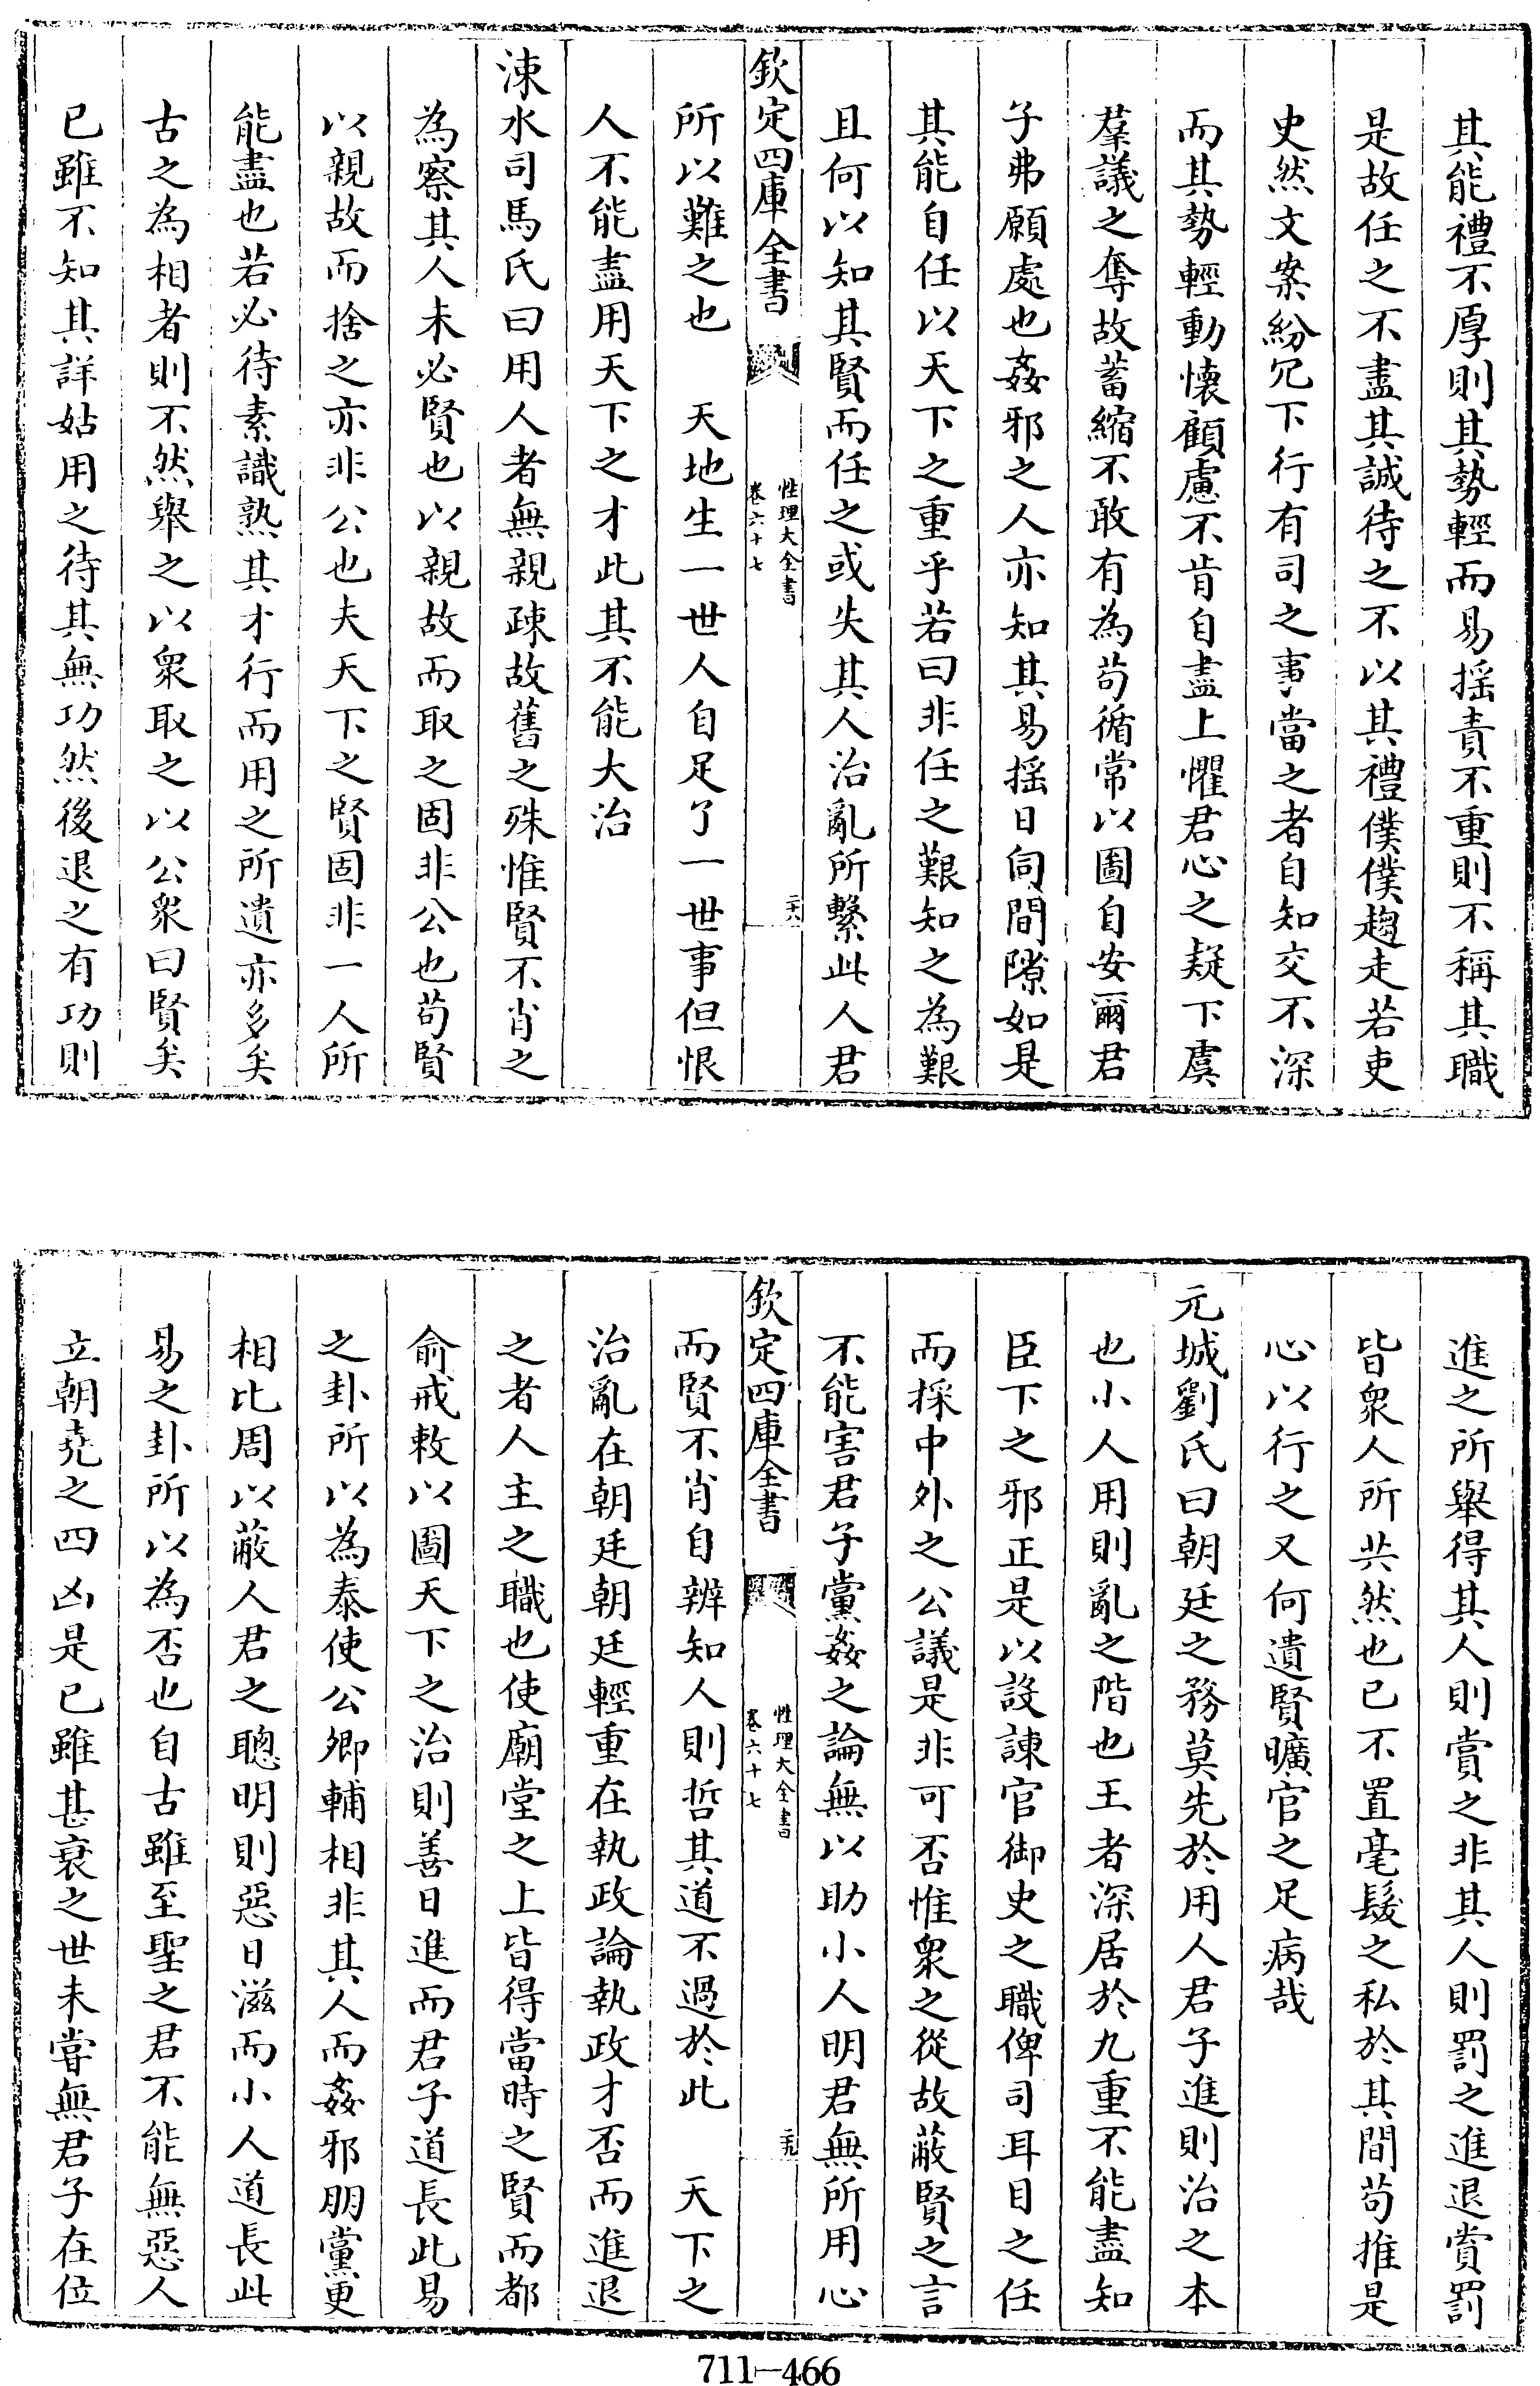 其能禮不厚則其勢輕而易揺責不重則不稱其職
是故任之不盡其誠待之不以其禮僕僕趨走若吏
史然文案紛冗下行有司之事當之者自知交不深
而其勢輕動懷顧慮不肯自盡上懼君心之疑下虞
羣議之奪故蓄縮不敢有為苟循常以圖自安爾君
子弗願處也姦邪之人亦知其易揺日伺間隙如是
其能自任以天下之重乎若曰非任之艱知之為艱
且何以知其賢而任之或失其人治亂所繫此人君
欽定四庫全書
性理大全書
卷六十七
二十八
所以難之也　天地生一世人自足了一世事但恨
人不能盡用天下之才此其不能大治
涑水司馬氏曰用人者無親疎故舊之殊惟賢不肖之
為察其人未必賢也以親故而取之固非公也苟賢
以親故而捨之亦非公也夫天下之賢固非一人所
能盡也若必待素識熟其才行而用之所遺亦多矣
古之為相者則不然舉之以衆取之以公衆曰賢矣
已雖不知其詳姑用之待其無功然後退之有功則
進之所舉得其人則賞之非其人則罰之進退賞罰
皆衆人所共然也已不置毫髮之私於其間苟推是
心以行之又何遺賢曠官之足病哉
元城劉氏曰朝廷之務莫先於用人君子進則治之本
也小人用則亂之階也王者深居於九重不能盡知
臣下之邪正是以設諫官御史之職俾司耳目之任
而採中外之公議是非可否惟衆之從故蔽賢之言
不能害君子黨姦之論無以助小人明君無所用心
欽定四庫全書
性理大全書
卷六十七
二十九
而賢不肖自辨知人則哲其道不過於此　天下之
治亂在朝廷朝廷輕重在執政論執政才否而進退
之者人主之職也使廟堂之上皆得當時之賢而都
俞戒敕以圖天下之治則善日進而君子道長此易
之卦所以為泰使公卿輔相非其人而姦邪朋黨更
相比周以蔽人君之聰明則惡日滋而小人道長此
易之卦所以為否也自古雖至聖之君不能無惡人
立朝堯之四凶是已雖甚衰之世未嘗無君子在位
711-466